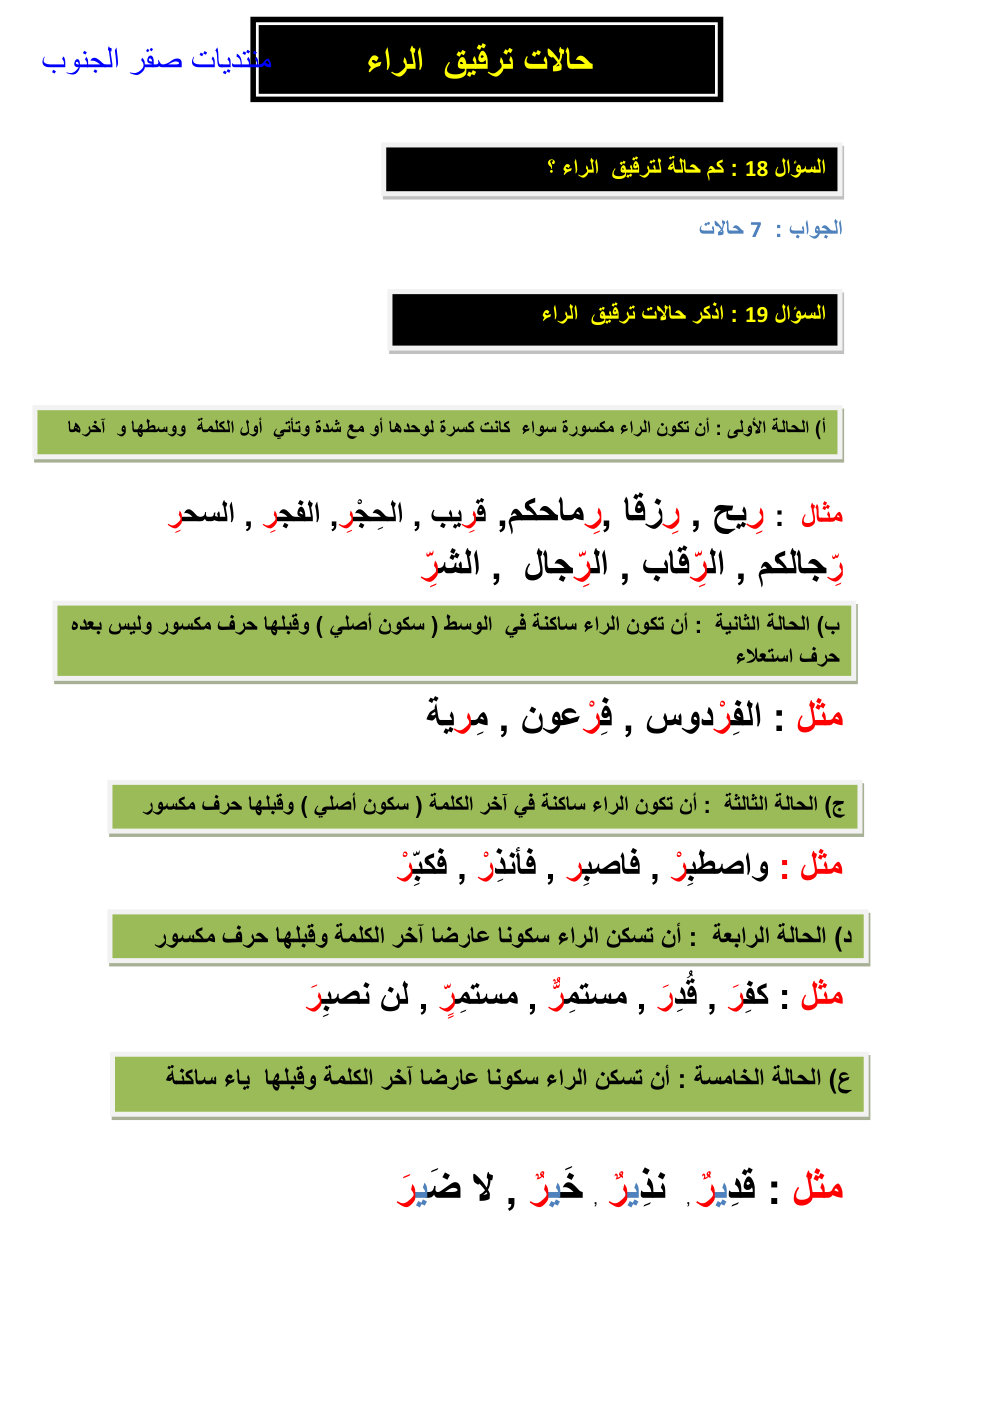 حالات ترقيق الراء
منتديات صقر الجنوب
السؤال 18 : كم حالة لترقيق الراء ؟
الجواب : 7 حالات
السؤال 19 : اذكر حالات ترقيق الراء
أ) الحالة الأولى : أن تكون الراء مكسورة سواء كانت كسرة لوحدها أو مع شدة وتأتي أول الكلمة ووسطها و آخرها
مثال : رِيح , رِزقا ,رِماحكم, قرِيب , الحِجْرِ, الفجرِ , السحرِ
رِّجالكم , الرِّقاب , الرِّجال , الشرِّ
ب) الحالة الثانية : أن تكون الراء ساكنة في الوسط ( سكون أصلي ) وقبلها حرف مكسور وليس بعده
حرف استعلاء
مثل : الفِرْدوس , فِرْعون , مِرية
ج) الحالة الثالثة : أن تكون الراء ساكنة في آخر الكلمة ( سكون أصلي ) وقبلها حرف مكسور
مثل : واصطبِرْ , فاصبِر , فأنذِرْ , فكبِّرْ
د) الحالة الرابعة : أن تسكن الراء سكونا عارضا آخر الكلمة وقبلها حرف مكسور
مثل : كفِرَ , قُدِرَ , مستمِرٌّ , مستمِرٍّ , لن نصبِرَ
ع) الحالة الخامسة : أن تسكن الراء سكونا عارضا آخر الكلمة وقبلها ياء ساكنة
مثل : قدِيرٌ , نذِيرٌ , خَيرٌ , لا ضَيرَ